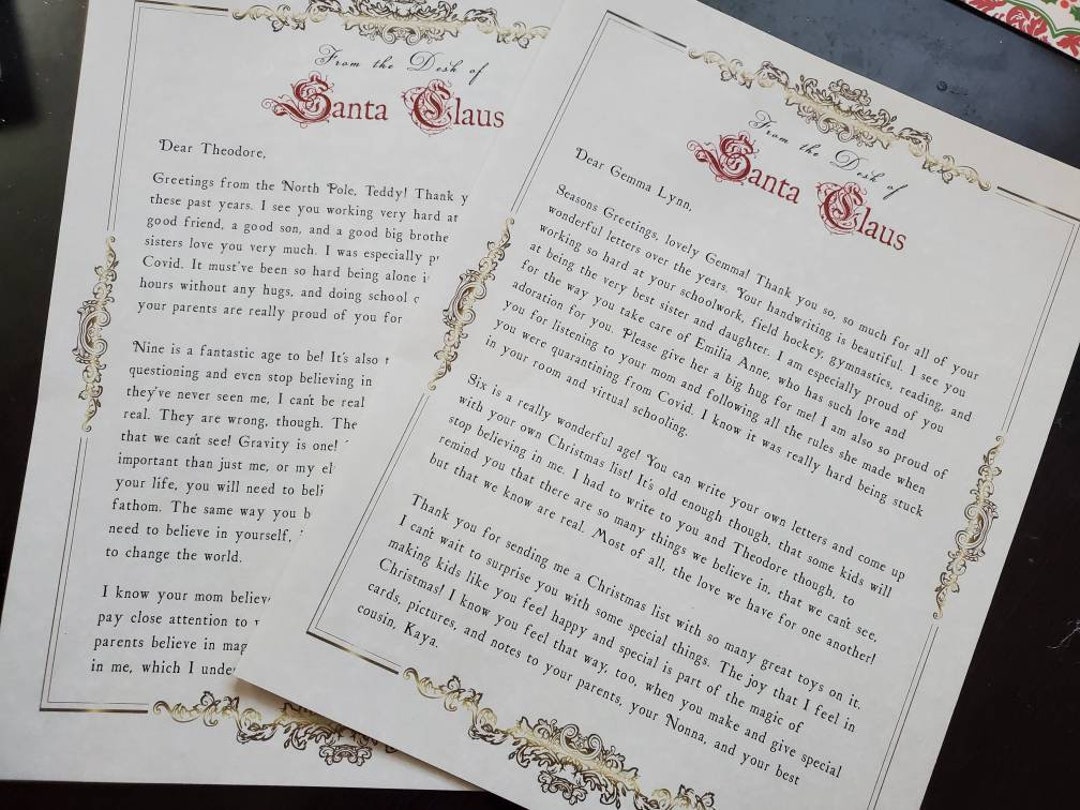 From the Desk of
Santa Claus
Dear Theodore,
Greetings from the North Pole, Teddy! Thank y
these past years. I see you working very hard at
good friend, a good son, and a good big brothe
sisters love you very much. I was especially pr
Covid. It must've been so hard being alone i
hours without any hugs, and doing school
your parents are really proud of you for
Nine is a fantastic age to be! It's also
questioning and even stop believing in
they've never seen me, I can't be real
real. They are wrong, though. The
that we can't see! Gravity is one!
important than just me, or my el
your life, you will need to beli
fathom. The same way you b
need to believe in yourself,
to change the world.
I know your mom believ
pay close attention to
parents believe in mag
in me, which I unde
From the Desk of
Santa Claus
Dear Gemma Lynn,
Seasons Greetings, lovely Gemma! Thank you so, so much for all of your
wonderful letters over the years. Your handwriting is beautiful. I see you
working so hard at your schoolwork, field hockey, gymnastics, reading, and
at being the very best sister and daughter. I am especially proud of you
for the way you take care of Emilia Anne, who has such love and
adoration for you. Please give her a big hug for me! I am also so proud of
you for listening to your mom and following all the rules she made when
you were quarantining from Covid. I know it was really hard being stuck
in your room and virtual schooling.
Six is a really wonderful age! You can write your own letters and come up
with your own Christmas list! It's old enough though, that some kids will
stop believing in me. I had to write to you and Theodore though, to
remind you that there are so many things we believe in, that we can't see,
but that we know are real. Most of all, the love we have for one another!
Thank you for sending me a Christmas list with so many great toys on it.
I can't wait to surprise you with some special things. The joy that I feel in
making kids like you feel happy and special is part of the magic of
Christmas! I know you feel that way, too, when you make and give special
cards, pictures, and notes to your parents, your Nonna, and your best
cousin, Kaya.